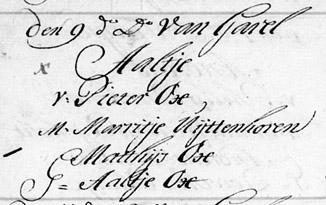 den 9 d:o D:o van Garel
x Aaltje
v: Pieter Ox
M: Marritje Uÿttenhoren
Matthijs Ox
G= Aaltje Ox